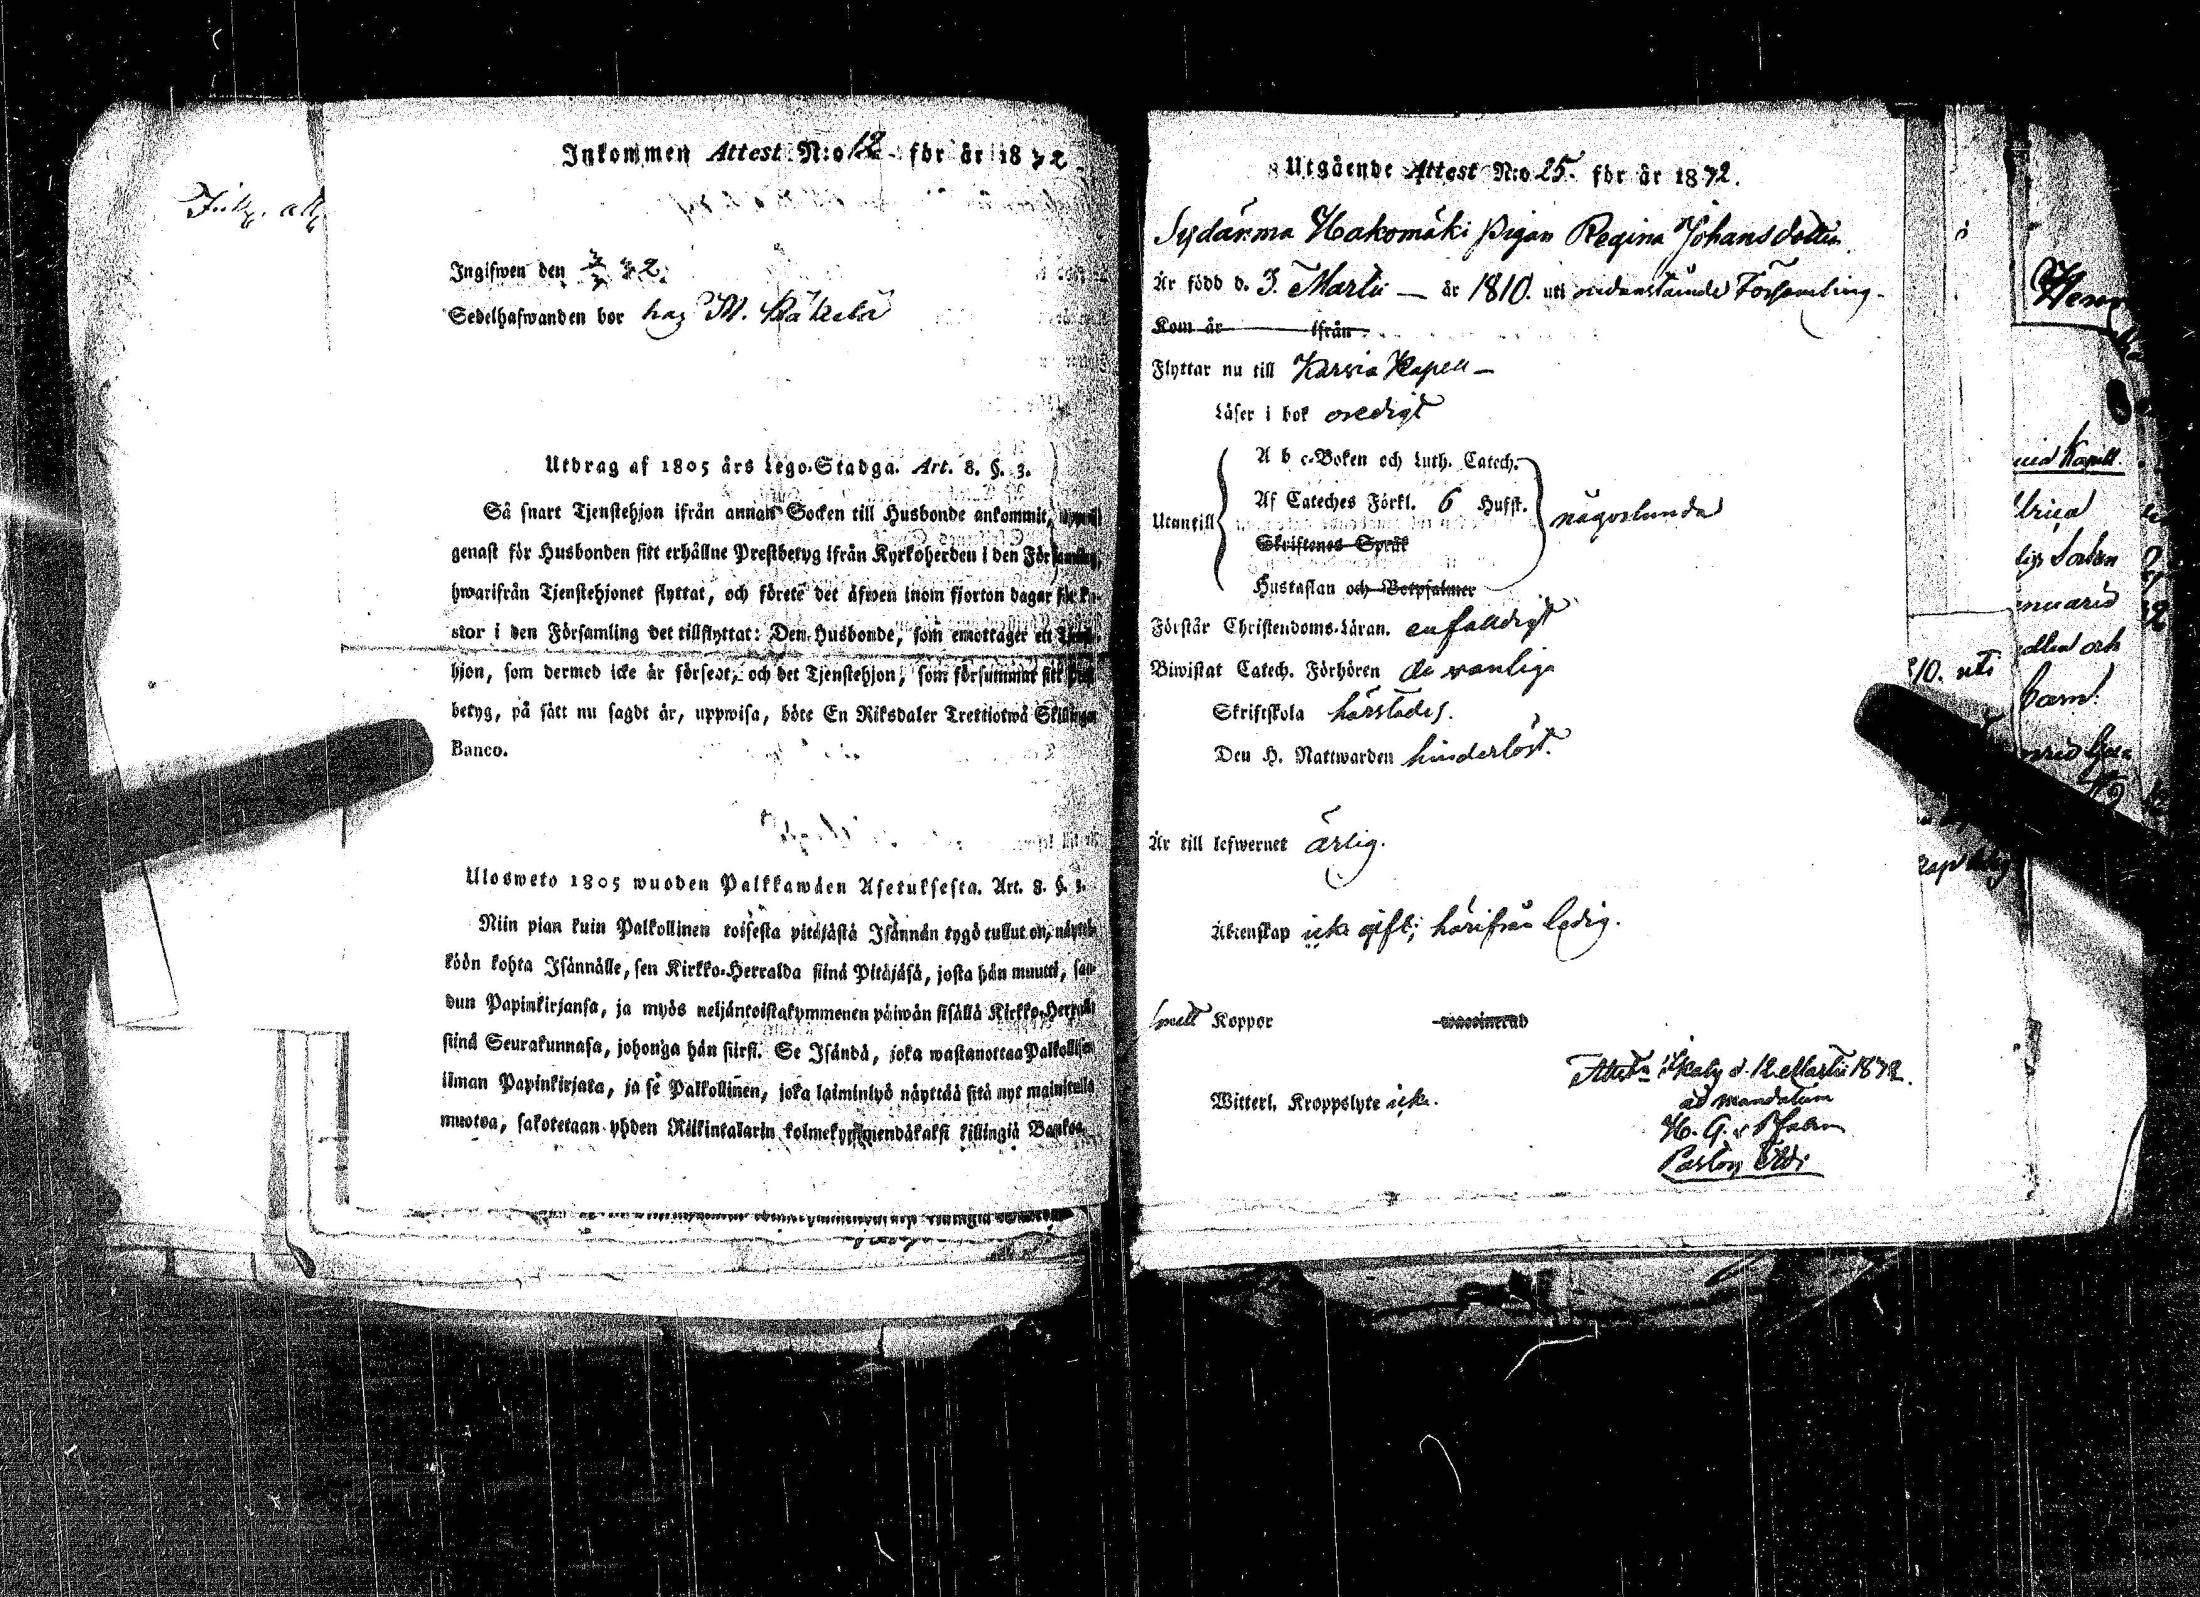 Inkommen Attest N:o 12 för år 1872
Ingifwen den
Sedelhafwanden bor hos M.
Utdrag af 1805 års Lego-Stadga. Art. 8. §. 3.
Så snart Tjenstehjon ifrån annan Socken till Husbonde ankommit,
genast för Husbonden sitt erhållne Prestbetyg ifrån Kyrkoherden i den Församling,
hwarifrån Tjenstehjonet flyttat, och förete det äfwen inom fjorton dagar för Pa-
stor i den Församling det tillflyttat: Den Husbonde, som emottager ett Tjenste-
hjon, som dermed icke är försedt, och det Tjenstehjon, som försummar sitt Prest-
betyg, på sätt nu sagdt är, uppwisa, böte En Riksdaler Trettiotwå Skillingar
Banco.
Ulosweto 1805 wuoden Palkkawäen Asetuksesta. Art. 8. §. 3.
Niin pian kuin Palkollinen toisesta pitäjästä Isännän tygö tullut on, näyttä-
köön kohta Isännälle, sen Kirkko-Herralda siinä Pitäjäsä, josta hän muutti, saa-
dun Papinkirjansa, ja myös neljäntoistakymmenen päiwän sisällä Kirkko-Herralle
siinä Seurakunnasa, johonga hän siirsi. Se Isändä, joka wastanottaa Palkollisen
ilman Papinkirjata, ja se Palkollinen, joka laiminlyö näyttää sitä nyt mainitulla
muotoa, sakotetaan yhden Riikintalarin kolmekymmendäkaksi killingiä Bankos.
Utgående Attest N:o 25. för år 1872.
Sydänma Hakomäki Pigan Regina Johansdotter
Är född d. 3. Martii — år 1810. uti nedanstående Församling.
Kom år ifrån
Flyttar nu till Karvia Kapell —
Läser i bok oredigt
Utantill
A b c-Boken och Luth. Catech.
Af Cateches Förkl. 6 Hufst.
någorlunda
Skriftenes Språk
Hustaflan och Botpsalmer
Förstår Christendoms-Läran. enfaldigt
Biwistat Catech. Förhören de vanliga
Skriftskola härstädes.
Den H. Nattwarden hinderlöst.
Är till lefwernet ärlig.
Äktenskap icke gift; härifrån ledig.
haft Koppor waccinerad
Witterl. Kroppslyte icke.
Ikalis d. 12 Martii 1872.
ad mandatum